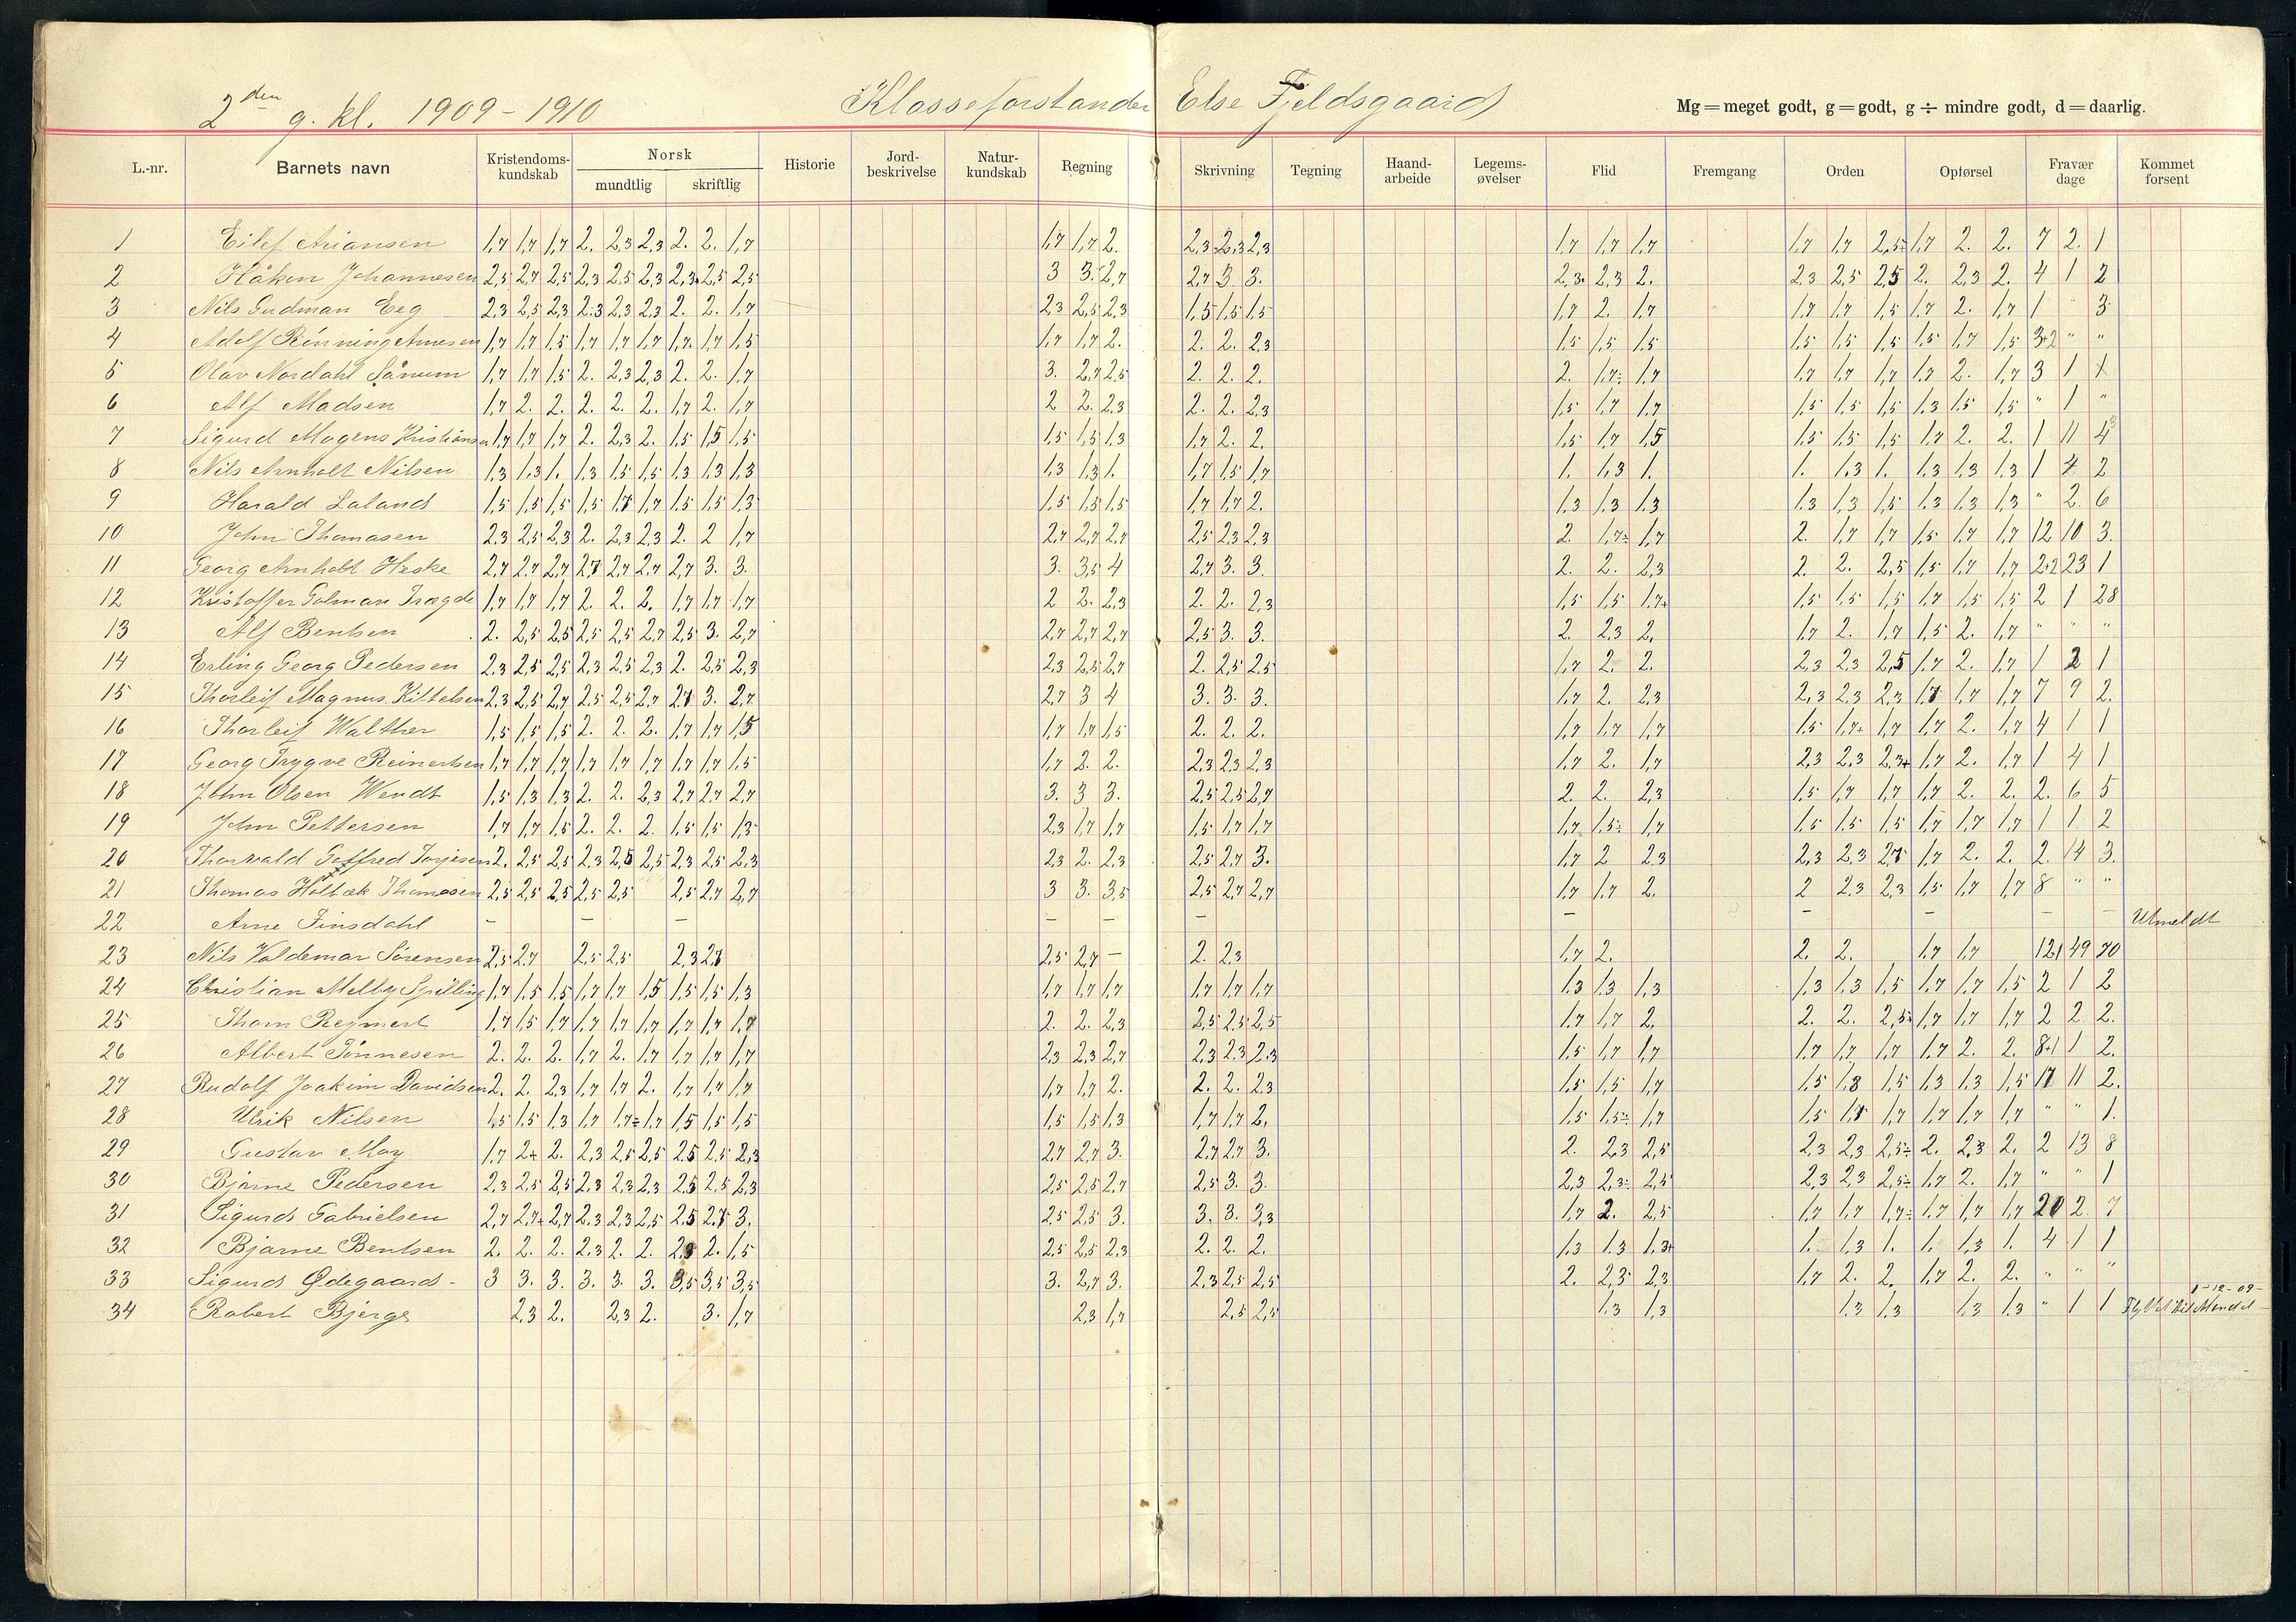 2den g. kl. 1909 - 1910 Klasseforstander Else Fjeldsgaard Mg = meget godt, g = godt, g ÷ mindre godt, d = daarlig.
L.-nr. Barnets navn Kristendoms-kundskab Norsk mundtlig skriftlig Historie Jord-beskrivelse Natur-kundskab Regning Skrivning Tegning Haand-arbeide Legems-øvelser Flid Fremgang Orden Opførsel Fravær dage Kommet forsent
1 Eilef Ariansen 1,7 1,7 1,7 2. 2,3 2,3 2. 2. 1,7 1,7 1,7 2. 2,3 2,3 2,3 1,7 1,7 1,7 1,7 1,7 2,5÷ 1,7 2. 2. 7 2. 1
2 Håken Johannesen 2,5 2,7 2,5 2,3 2,5 2,3 2,3 2,5 2,5 3 3. 2,7 2,7 3. 3. 2,3 2,3 2. 2,3 2,5 2,5 2. 2,3 2. 4 1 2
3 Nils Gudman Eeg 2,3 2,5 2,3 2,3 2,3 2,3 2. 2. 1,7 2,3 2,5 2,3 1,5 1,5 1,5 1,7 2. 1,7 1,7 1,7 1,5 1,7 2. 1,7 1 " 3
4 Adolf Rønning Arnesen 1,7 1,7 1,5 1,7 1,7 1,7 1,7 1,7 1,5 1,7 1,7 2. 2. 2. 2,3 1,5 1,5 1,5 1,5 1,5 1,5 1,5 1,7 1,5 3+2 " "
5 Olav Nordahl Sånum 1,7 1,7 1,5 2. 2,3 2,3 2. 2. 1,7 3. 2,7 2,5 2. 2. 2. 2. 1,7÷ 1,7 1,7 1,7 1,7 1,7 2. 1,7 3 1 1
6 Alf Madsen 1,7 2. 2. 2. 2. 2. 1,7 2. 1,7 2 2. 2,3 2. 2. 2,3 1,5 1,7 1,7 1,5 1,5 1,5 1,3 1,5 1,5 " 1 "
7 Sigurd Mogens Kristiansen 1,7 1,7 1,7 2. 2,3 2. 1,5 1,5 1,5 1,5 1,5 1,3 1,7 2. 2. 1,5 1,7 1,5 1,5 1,5 1,5 1,7 2. 2. 1 11 4
8 Nils Arnholt Nilsen 1,3 1,3 1. 1,3 1,5 1,5 1,3 1,3 1,3 1,3 1,3 1. 1,7 1,5 1,7 1. 1,3 1. 1. 1,3 1. 1,3 1,3 1,3 1 4 2
9 Harald Laland 1,5 1,5 1,5 1,5 1,7 1,7 1,5 1,5 1,3 1,5 1,5 1,5 1,7 1,7 2. 1,3 1,3 1,3 1,3 1,3 1,5 1,3 1,3 1,3 " 2. 6
10 John Thomasen 2,3 2,5 2,3 2. 2,3 2,3 2. 2 1,7 2,7 2,7 2,7 2,5 2,3 2,3 2. 1,7÷ 1,7 2. 1,7 1,7 1,5 1,7 1,7 12 10 3.
11 Georg Arnholt Heske 2,7 2,7 2,7 2,7 2,7 2,7 2,7 3. 3. 3. 3,5 4 2,7 3. 3. 2. 2. 2,3 2. 2. 2,5 1,5 1,7 1,7 2+2 23 1
12 Kristoffer Golman Trægde 1,7 1,7 1,7 2. 2. 2. 1,7 1,7 1,7 2 2. 2,3 2. 2. 2,3 1,5 1,5 1,7+ 1,5 1,5 1,5 1,7 1,5 1,5 2 1 28
13 Alf Bentsen 2. 2,5 2,5 2,5 2,5 2,7 2,5 3. 2,7 2,7 2,7 2,7 2,5 3. 3. 2. 2,3 2. 1,7 2. 1,7 1,5 2. 1,7 " " "
14 Erling Georg Pedersen 2,3 2,5 2,5 2,3 2,5 2,3 2. 2,5 2,3 2,3 2,5 2,7 2. 2,5 2,5 1,7 2. 2. 2,3 2,3 2,5 1,7 2. 1,7 1 2 1
15 Thorleif Magnus Kittelsen 2,3 2,5 2,7 2,5 2,5 2,7 2,7 3. 2,7 2,7 3 4 3. 3. 3. 1,7 2. 2,3 2,3 2,3 2,3 1,7 1,7 1,7 7 9 2.
16 Thorleif Walther 1,5 1,5 1,5 2. 2. 2. 1,7 1,7 1,5 1,7 1,7 1,5 2. 2. 2. 1,7 1,7 1,7 1,5 1,7+ 1,7 1,7 2. 1,7 4 1 1
17 Georg Trygve Reinertsen 1,7 1,7 1,7 1,7 1,7 1,7 1,7 1,7 1,5 1,7 2. 2. 2,3 2,3 2,3 1,7 2. 1,7 2,3 2,3 2,3+ 1,7 2. 1,7 1 4 1
18 John Olsen Wendt 1,5 1,3 1,3 2. 2. 2,3 2,7 2,7 2,7 3. 3 3. 2,5 2,5 2,7 2. 2. 2,3 1,5 1,7 1,7 1,7 2. 2. 2. 6 5
19 John Pettersen 1,7 1,7 1,5 2. 2. 2. 1,5 1,5 1,3 2,3 1,7 1,7 1,5 1,7 1,7 1,7 1,5÷ 1,7 1,5 1,5 1,5 1,7 1,7 1,7 1 1 2
20 Thorvald Gotfred Torjesen 2. 2,5 2,5 2,3 2,5 2,5 2,3 2,5 2,3 2,3 2. 2,3 2,5 2,7 3. 1,7 2 2,3 2,3 2,3 2,7 1,7 2. 2. 2. 14 3.
21 Thomas Holbæk Thomasen 2,5 2,5 2,5 2,5 2,5 2,5 2,7 2,7 3 3. 3,5 2,5 2,7 2,7 1,7 1,7 2. 2 2,3 2,3 1,5 1,7 1,7 8 " "
22 Arne Finsdahl - - - - - - - - - - - Utmeldt
23 Nils Valdemar Sørensen 2,5 2,7 2,5 2,5 2,3 2,7 2,5 2,7 - 2. 2,3 1,7 2. 2. 2. 1,7 1,7 121 49 70
24 Christian Melby Spilling 1,7 1,5 1,5 1,7 1,7 1,5 1,5 1,5 1,3 1,7 1,7 1,7 1,7 1,7 1,7 1,3 1,3 1,3 1,3 1,3 1,5 1,7 1,7 1,5 2 1 2
25 Thom Reymert 1,7 1,5 1,7 1,7 1,7 1,7 1,7 1,7 1,7 2. 2. 2,3 2,5 2,5 2,5 1,7 1,7 2. 2. 2. 2,5+ 1,7 1,7 1,7 2 2 2.
26 Albert Tønnesen 2. 2. 2. 1,7 2. 1,7 1,7 1,7 1,7 2,3 2,3 2,7 2,3 2,3 2,3 1,5 1,7 1,7 1,7 1,7 1,7 1,7 2. 2. 8+1 1 2.
27 Rudolf Joakim Davidsen 2. 2. 2,3 1,7 1,7 2. 1,7 1,7 1,7 1,7 1,7 2. 2. 2. 2,3 1,5 1,5 1,7 1,5 1,3 1,5 1,3 1,3 1,5 17 11 2.
28 Ulrik Nilsen 1,5 1,5 1,3 1,7 1,7÷ 1,7 1,5 1,5 1,5 1,5 1,5 1,3 1,7 1,7 2. 1,5 1,5÷ 1,7 1,5 1,7 1,7 1,7 1,7 1,7 " " 1.
29 Gustav Moy 1,7 2+ 2. 2,3 2,5 2,5 2,5 2,5 2,3 2,7 2,7 3. 2,7 2,7 3. 2. 2,3 2,5 2,3 2,3 2,5÷ 2. 2,3 2. 2 13 8
30 Bjarne Pedersen 2,3 2,5 2,5 2,3 2,3 2,3 2,5 2,5 2,3 2,5 2,5 2,7 2,5 3. 3. 2,3 2,3÷ 2,5 2,3 2,3 2,5÷ 1,7 2. 1,7 " " 1
31 Sigurd Gabrielsen 2,7 2,7+ 2,7 2,3 2,3 2,5 2,5 2,7 3. 2,5 2,5 3. 3. 3. 3,3 1,7 2. 2,5 1,7 1,7 1,7÷ 1,7 1,7 1,7 20 2. 7
32 Bjarne Bentsen 2. 2. 2. 2,3 2. 2. 2,3 2. 1,5 2,5 2,5 2,3 2. 2. 2. 1,3 1,3 1,3+ 1. 1,3 1. 1. 1,3 1. 4 1 1
33 Sigurd Ødegaard - 3 3. 3. 3. 3. 3. 3,5 3,5 3,5 3. 2,7 3. 2,3 2,5 2,5 2. 2,3 2,3 1,7 2. 2. 1,7 2. 2. " " " 1-12-09-
34 Robert Bjerge 2,3 2. 2,3 2. 3. 1,7 2,3 1,7 2,5 2,5 1,3 1,3 1,3 1,3 1,3 1,3 " 1 1 Flyttet til Mandal